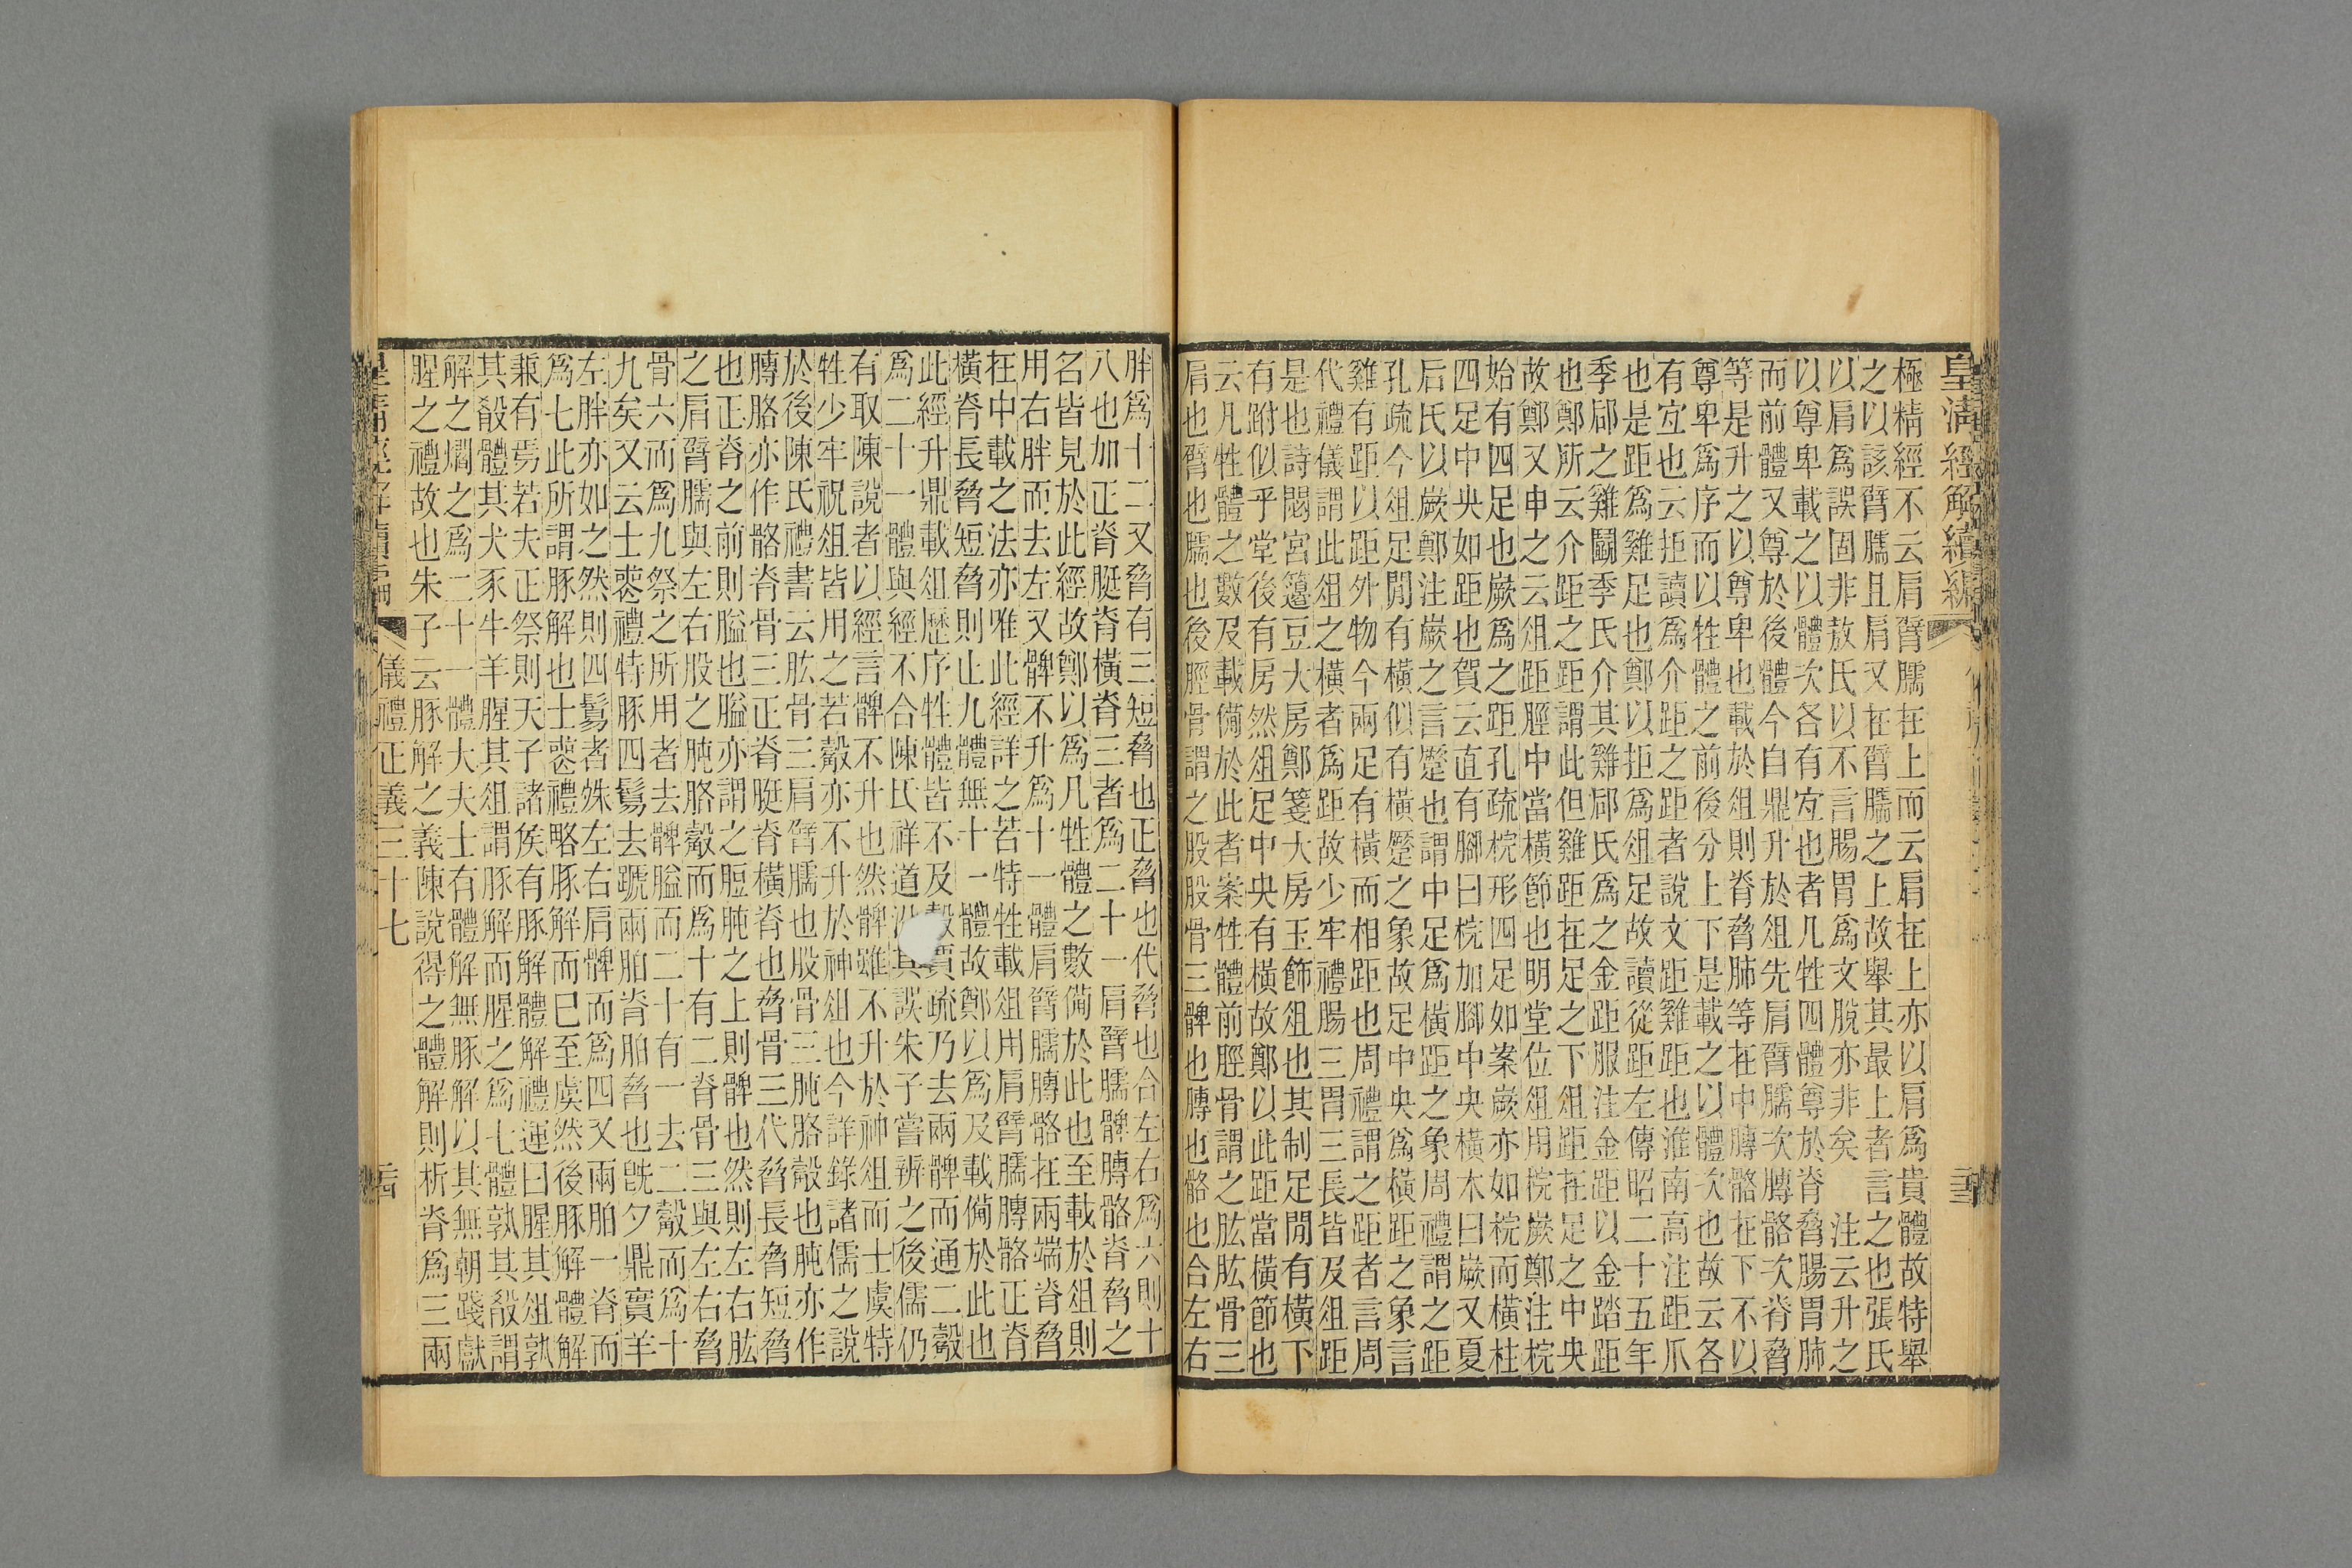 皇清經解續編
極精經不云肩臂臑在上而云肩在上亦以肩爲貴體故特舉
之以該臂臑且肩又在臂臑之上故舉其最上者言之也張氏
以肩爲誤固非敖氏以不言腸胃爲文脫亦非矣 注云升之
以尊卑載之以體次各有宜也者凡牲四體尊於脊 脅腸胃肺
而前體又尊於後體今自鼎升於俎先肩臂臑次膊骼次脊脅
等是升之以尊卑也載於俎則脊脅肺等在中膊骼在下不以
尊卑爲序而以牲體之前後分上下是載之以體次也故云各
有宜也云拒讀爲介距之距者說文距雞距也淮南高注距爪
也是距爲雞足也鄭以拒爲俎足故讀從距左傳昭二十五年
季郈之雞鬭季氏介其雞郈氏爲之金距服注金距以金踏距
也鄭所云介距之距謂此但雞距在足之下俎距在足之中央
故鄭又申之云俎距脛中當橫節也明堂位俎用梡嶡鄭注梡
始有四足也嶡爲之距孔疏梡形四足如案嶡亦如梡而橫柱
四足中央如距也賀云直有腳曰梡加腳中央橫木曰嶡又夏
后氏以嶡鄭注嶡之言蹷也謂中足爲橫距之象周禮謂之距
孔疏今俎足閒有橫似有橫蹷之象故足中央爲橫距之象言
雞有距以距外物今兩足有橫而相距也周禮謂之距者言周
代禮儀謂此俎之橫者爲距故少牢禮腸三胃三長皆及俎距
是也詩閟宮籩豆大房鄭箋大房玉飾俎也其制足閒有橫下
有跗似乎堂後有房然俎足中央有橫故鄭以此距當橫節也
云凡牲體之數及載備於此者案牲體前脛骨謂之肱肱骨三
肩也臂也臑也後脛骨謂之股股骨三髀也膊也骼也合左右
胖爲十二又脅有三短脅也正脅也代脅也合左右爲六則十
八也加正脊脡脊橫脊三者爲二十一肩臂臑髀膊骼脊脅之
名皆見於此經故鄭以爲凡牲體之數備於此也至載於俎則
用右胖而去左又髀不升爲十一體肩臂臑膊骼在兩端脊脅
在中載之法亦唯此經詳之若特牲載俎用肩臂臑膊骼正脊
橫脊長脅短脅則止九體無十一體故鄭以爲及載備於此也
此經升鼎載俎歷序牲體皆不及賈疏乃去兩髀而通二觳
爲二十一體與經不合陳氏祥道其誤朱子嘗辨之後儒仍
有取陳說者以經言髀不升也然髀雖不升於神俎而士虞特
牲少牢祝俎皆用之若觳亦不升於神俎也今詳錄諸儒之說
於後陳氏禮書云肱骨三肩臂臑也股骨三肫胳觳也肫亦作
膊胳亦作骼脊骨三正脊脡脊橫脊也脅骨三代脅長脅短脅
也正脊之前則膉也膉亦謂之脰肫之上則髀也然則左右肱
之肩臂臑與左右股之肫胳觳而爲十有二脊骨三與左右脅
骨六而爲九祭之所用者去髀膉而二十有一去二觳而爲十
九矣又云士喪禮特豚四鬄去蹏兩胉脊胉脅也旣夕鼎實羊
左胖亦如之然則四鬄者殊左右肩髀而爲四又兩胉一脊而
爲七此所謂豚解也士喪禮略豚解而已至虞然後豚解體解
兼有焉若夫正祭則天子諸侯有豚解體解禮運曰腥其俎孰
其殽體其犬豕牛羊腥其俎謂豚解而腥之爲七體孰其殽謂
解之爓之爲二十一體大夫士有體解無豚解以其無朝踐獻
腥之禮故也朱子云豚解之義陳說得之體解則析脊爲三兩
儀禮正義三十七